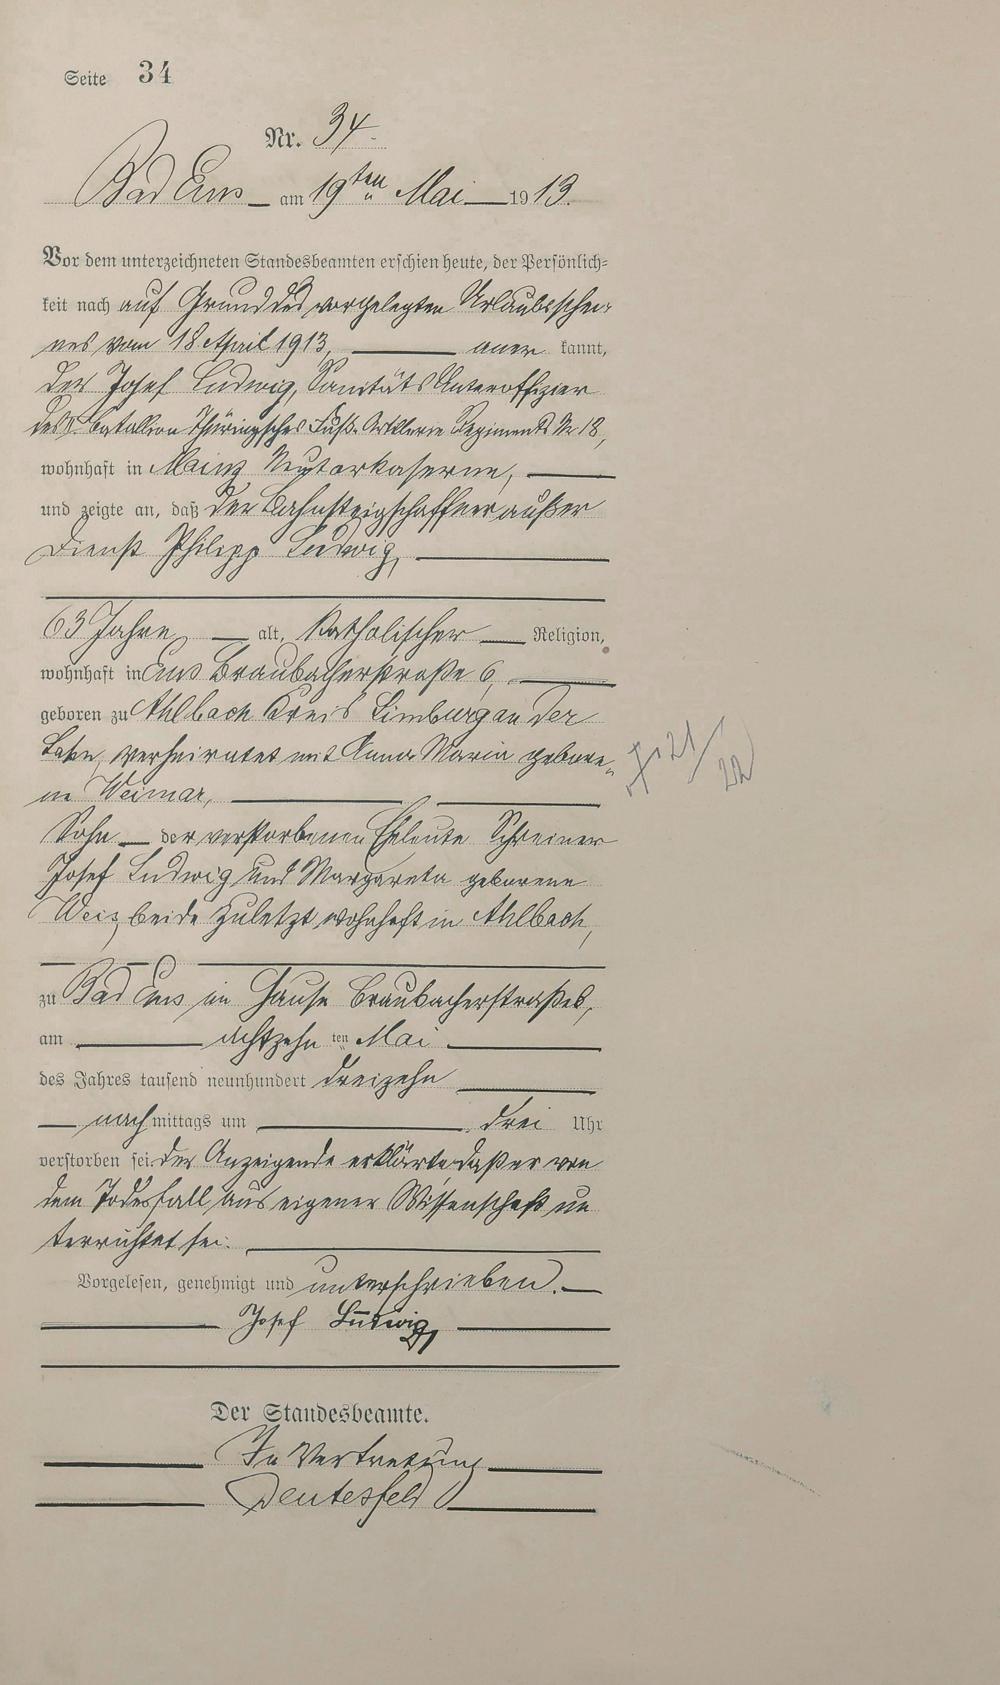 Seite 34
Nr. 34.
Bad Ems am 19ten Mai 1913.
Vor dem unterzeichneten Standesbeamten erschien heute, der Persönlich=
keit nach auf Grund des vorgelegten Urlaubsschei-
nes vom 18 April 1913, aner kannt,
der Josef Ludwig, Sanitäts Unteroffizier
des Batallion Thüringsches Fuß-Artillerie Regiments Nr 18,
wohnhaft in Mainz Neutorkaserne,
und zeigte an, daß der Bahnsteigschaffner außer
Dienst Philipp Ludwig,
63 Jahre alt, Katholischer Religion,
wohnhaft in Ems Braubacherstraße 6,
geboren zu Ahlbach Kreis Limburg an der
Lahn, verheiratet mit Anna Maria gebore-
ne Weimar,
Sohn der verstorbenen Eheleute Schreiner
Josef Ludwig und Margareta geborene
Weis, beide zuletzt wohnhaft in Ahlbach,
zu Bad Ems im Hause Braubacherstraße 6,
am achtzehn ten Mai
des Jahres tausend neunhundert dreizehn
nach mittags um drei Uhr
verstorben sei. Der Anzeigende erklärte daß er von
dem Todesfall aus eigener Wissenschaft un
terrichtet sei.
Vorgelesen, genehmigt und unterschrieben.
Josef Ludwig
Der Standesbeamte.
In Vertretung
Deutesfeld